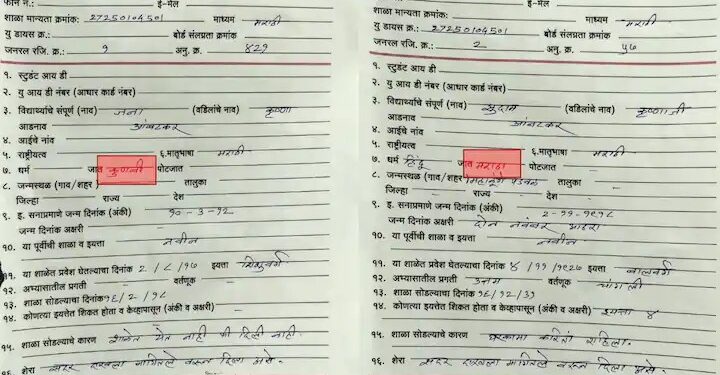 फोन नं.: ई-मेल
शाळा मान्यता क्रमांक: २7२50१0४50१ माध्यम मराठी
यु डायस क्र.: बोर्ड संलग्रता क्रमांक
जनरल रजि. क्र.: १ अनु. क्र. ४२९
१. स्टुडंट आय डी
२. यु आय डी नंबर (आधार कार्ड नंबर)
३. विद्यार्थ्यांचे संपूर्ण (नाव) जना (वडिलांचे नाव) कृष्णा
आडनाव आंबटकर
४. आईचे नांव
५. राष्ट्रीयत्व ६.मातृभाषा मराठी
७. धर्म जात कुणबी पोटजात
८. जन्मस्थळ (गाव/शहर) तालुका
जिल्हा राज्य देश
९. इ. सनाप्रमाणे जन्म दिनांक (अंकी) १०-३-१२
जन्म दिनांक अक्षरी
१०. या पूर्वीची शाळा व इयत्ता नवीन
११. या शाळेत प्रवेश घेतल्याचा दिनांक २/८/१७ इयत्ता
१२. अभ्यासातील प्रगती वर्तणूक
१३. शाळा सोडल्याचा दिनांक १६/२/१८
१४. कोणत्या इयत्तेत शिकत होता व केव्हापासून (अंकी व अक्षरी)
१५. शाळा सोडल्याचे कारण शाळेत येत नाही फी दिली नाही.
१६. शेरा सदर दाखला मागितले वरून दिला असे.
ई-मेल
शाळा मान्यता क्रमांक: माध्यम मराठी
यु डायस क्र.: २7२50१0४50१ बोर्ड संलग्रता क्रमांक
जनरल रजि. क्र.: 2 अनु. क्र. ५७
१. स्टुडंट आय डी
२. यु आय डी नंबर (आधार कार्ड नंबर)
३. विद्यार्थ्यांचे संपूर्ण (नाव) सुदाम (वडिलांचे नाव) कृष्णाजी
आडनाव आंबटकर
४. आईचे नांव
५. राष्ट्रीयत्व ६.मातृभाषा मराठी
७. धर्म हिंदू जात मराठा पोटजात
८. जन्मस्थळ (गाव/शहर) तालुका
जिल्हा राज्य देश
९. इ. सनाप्रमाणे जन्म दिनांक (अंकी) २-११-१९१८
जन्म दिनांक अक्षरी दोन नवंबर अठरा
१०. या पूर्वीची शाळा व इयत्ता नवीन
११. या शाळेत प्रवेश घेतल्याचा दिनांक ४/११/१९२७ इयत्ता बालवर्ग
१२. अभ्यासातील प्रगती उत्तम वर्तणूक चांगली
१३. शाळा सोडल्याचा दिनांक १६/१२/३१
१४. कोणत्या इयत्तेत शिकत होता व केव्हापासून (अंकी व अक्षरी) इयत्ता ४
१५. शाळा सोडल्याचे कारण घरकामा करितां राहिला.
१६. शेरा सदर दाखला मागितले वरून दिला असे.